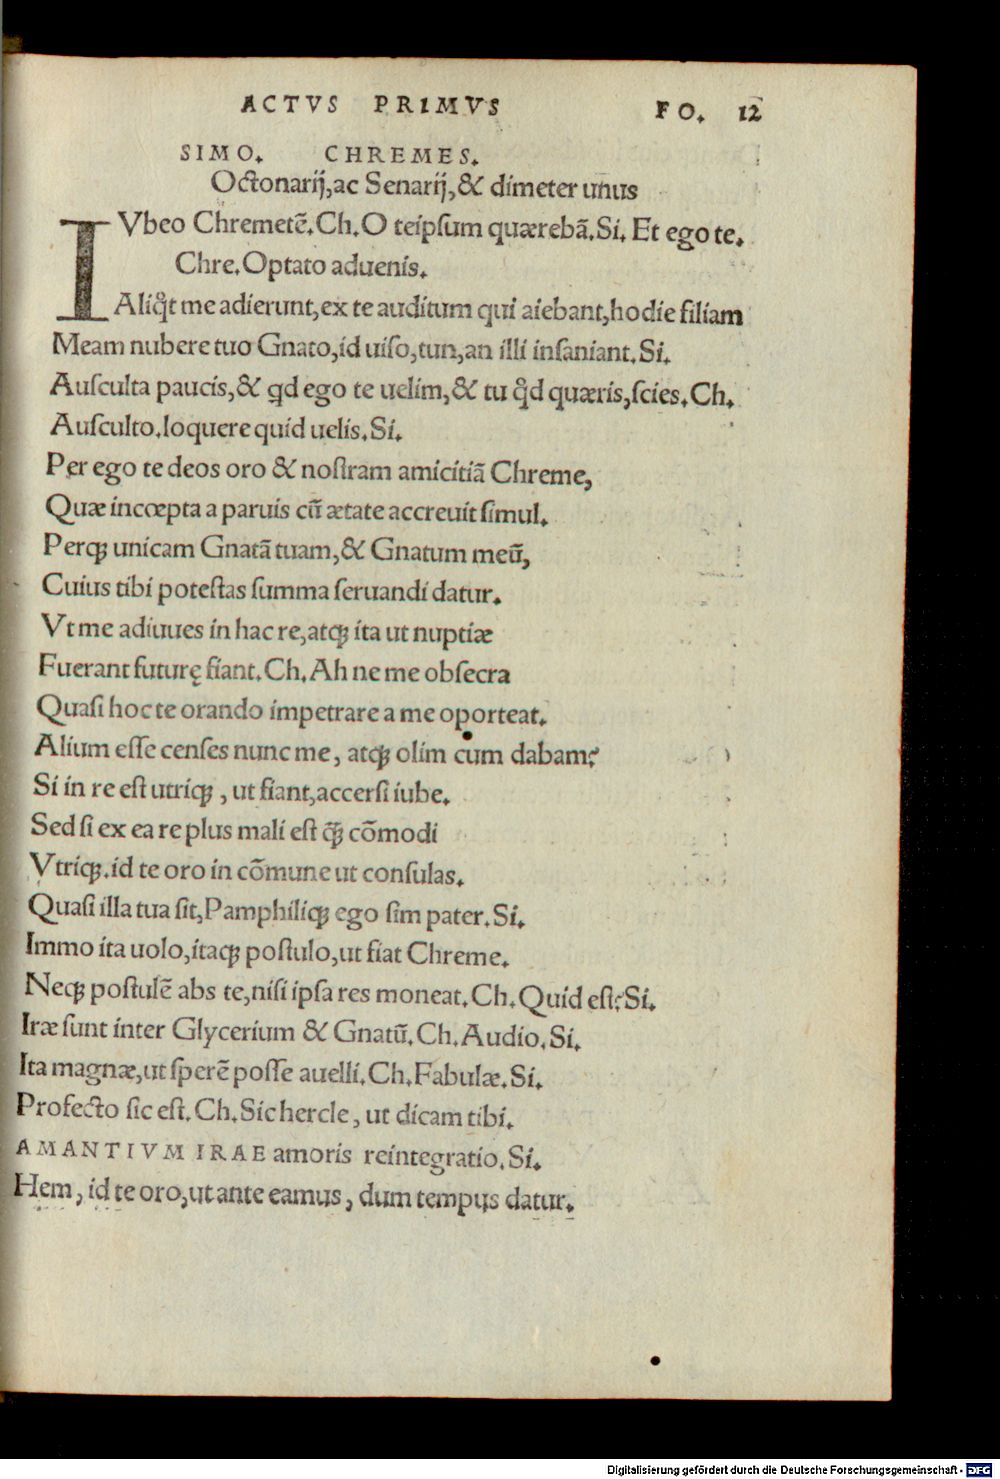 ACTVS PRIMVS FO. 12
SIMO. CHREMES.
Octonarij, ac Senarij, & dimeter unus
IVbeo Chremetẽ. Ch. O teipſum quærebã. Si. Et ego te.
Chre. Optato aduenis.
Aliq̊t me adierunt, ex te auditum qui aiebant, hodie filiam
Meam nubere tuo Gnato, id uiſo, tun, an illi inſaniant. Si.
Auſculta paucis, & qd ego te uelim, & tu q̊d quæris, ſcies. Ch.
Auſculto. loquere quid uelis. Si.
Per ego te deos oro & noſtram amicitiã Chreme,
Quæ incœpta a paruis cũ ætate accreuit ſimul.
Perqꝫ unicam Gnatã tuam, & Gnatum meũ,
Cuius tibi poteſtas ſumma ſeruandi datur.
Vt me adiuues in hac re, atqꝫ ita ut nuptiæ
Fuerant futurę fiant. Ch. Ah ne me obſecra
Quaſi hoc te orando impetrare a me oporteat.
Alium eſſe cenſes nunc me, atqꝫ olim cum dabam?
Si in re eſt utriqꝫ, ut fiant, accerſi iube.
Sed ſi ex ea re plus mali eſt q̃ꝫ cõmodi
Vtriqꝫ. id te oro in cõmune ut conſulas.
Quaſi illa tua ſit, Pamphiliqꝫ ego ſim pater. Si.
Immo ita uolo, itaqꝫ poſtulo, ut fiat Chreme.
Neqꝫ poſtulẽ abs te, niſi ipſa res moneat. Ch. Quid eſt? Si.
Iræ ſunt inter Glycerium & Gnatũ. Ch. Audio. Si.
Ita magnæ, ut ſperẽ poſſe auelli. Ch. Fabulæ. Si.
Profecto ſic eſt. Ch. Sic hercle, ut dicam tibi.
AMANTIVM IRAE amoris reintegratio. Si.
Hem, id te oro, ut ante eamus, dum tempus datur.
Digitalisierung gefördert durch die Deutsche Forschungsgemeinschaft - DFG